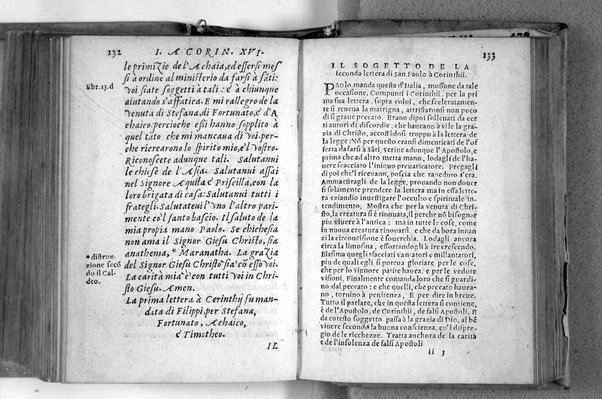 132 I. A CORIN. XVI.
le primizie de l'Achaia, ed essersi mes
si à ordine al ministerio da farsi à sāti:
Voi siate soggetti à tali: è à chiunque
aiutando s'affatica. E mi rallegro de la
venuta di Stefana, di Fortunato, è d'A
chaico: percioche essi hanno sopplito à
quel tāto che mi mancaua di voi. per-
che ricrearono lo spirito mio, è'l vostro.
Riconoscete adunque tali. Salutanui
le chiese de l'Asia. Salutanui assai
nel Signore Aquila è Priscilla, con la
loro brigata di casa: Salutanui tutti i
frategli. Salutateui l'vno l'altro pari-
mente co'l santo bascio. Il saluto de la
mia propia mano Paolo. Se chiche sia
non ama il Signor Giesu Christo, sia
anathema, * Maranatha. La grazia
del Signor Giesu Christo sia cō esso voi.
La carità mia è con tutti voi in Chri-
sto Giesu. Amen.
La prima lettera à Corinthij fu man-
data di Filippi, per Stefana,
Fortunato, Achaico,
è Timotheo.
IL
Ebr.13.d
* distru-
zione secō
do il Cal-
deo.
133
IL SOGETTO DE LA
seconda lettera di san Paolo à Corinthii.
PAolo manda questa d'Italia, mossone da tale
occasione. Compunti i Corinthii, per la pri
ma sua lettera, sopra colui, che sceleratamen-
te si teneua la matrigna, attristaronsi non poco
di si graue peccato. Erano dipoi solleuati da cer
ti autori di discordie, che haueano à vile la grazia
di Christo, accostādosi troppo à la lettera de
la legge. Nè per questo eransi dimenticati de l'of
ferta da farsi à sāti, scriue adunque l'Apostolo, e
prima che ad altro metta mano, lodagli de l'ha-
uere scacciato l'inico preuaricatore. Pregagli
di poi che l'accettino, poscia che raueduto s'era.
Ammaestragli de la legge, prouando non douer
si solamente prendere la lettera ma in essa lette-
ra eziandio inuestigare l'occulto e spirituale in-
tendimento. Mostra che per la venuta di Chri-
sto, la creatura si è rinouata, il perche nō bisognar
piu viuere à l'antica: ma in tutte le cose, come
in nuoua creatura rinouarsi. e che da hora innan
zi la circoncisione è souerchia. Lodagli ancora
circa la limosina, esortandogli à ire crescendo.
Biasma quegli sfacciati vanatori e millantatori,
piu de quali egli si poteua gloriare, per le cose,
che per lo signore patire hauea. e per le vedute
visioni. Finalmente comanda loro che si guardi-
no dal peccato: e che quelli, che peccato haueua-
no, tornino à penitenza. E per dire in breue.
Tutto il parlare, che in questa lettera si contiene,
è de l'Apostolo, de Corinthii, de falsi Apostoli. E
da cotesto soggetto passa à la grazia di Dio, al bē
viuere secondo la buona conscienza, co'l dispre-
gio de le ricchezze. Tratta anchora de la carità
e de l'insolenza de falsi Apostoli
ii 3